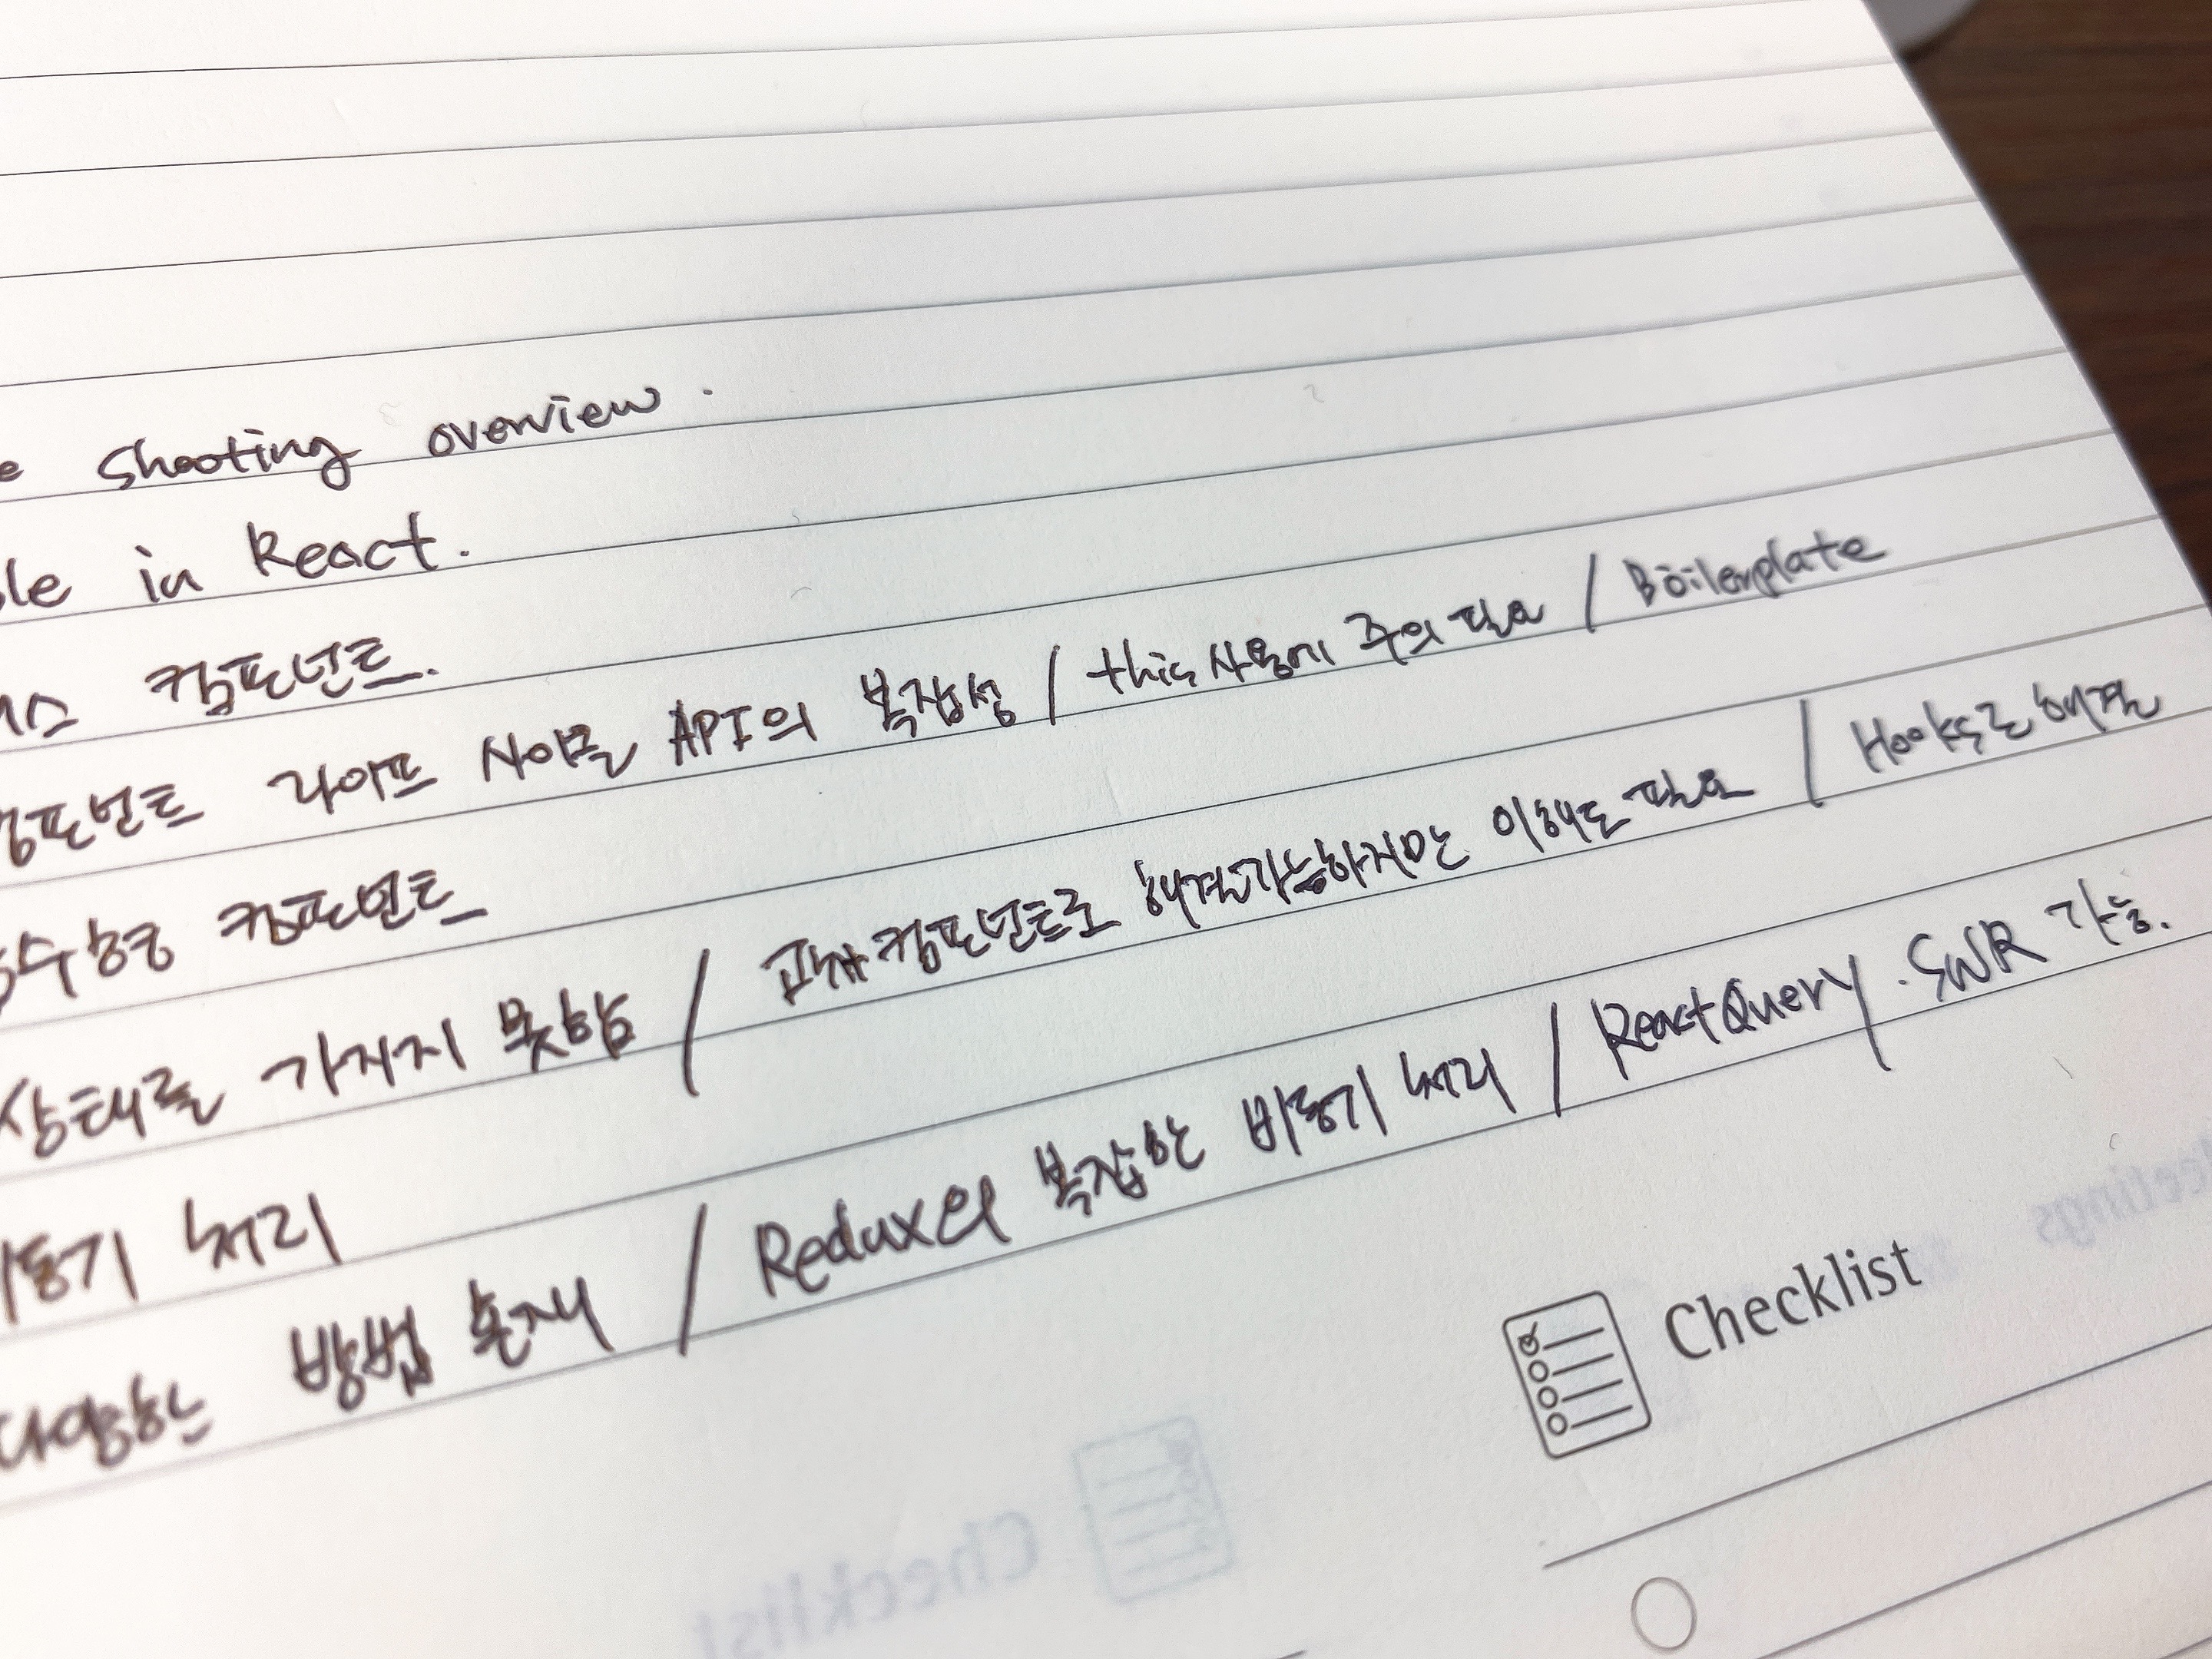 e shooting overview.
le in React.
스 컴포넌트.
컴포넌트 라이프 사이클 API의 복잡성 / this 사용에 주의 필요 / Boilerplate
수형 컴포넌트
상태를 가지지 못함 / 고차 컴포넌트로 해결가능하지만 이해도 필요 / Hooks로 해결
동기 처리
다양한 방법 존재 / Redux의 복잡한 비동기 처리 / ReactQuery, SWR 가능.
eetings
Checklist
Checklist